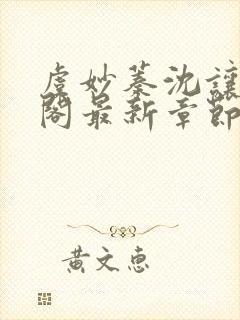 虞妙蓁沈讓
閣最新章節
黃文惠